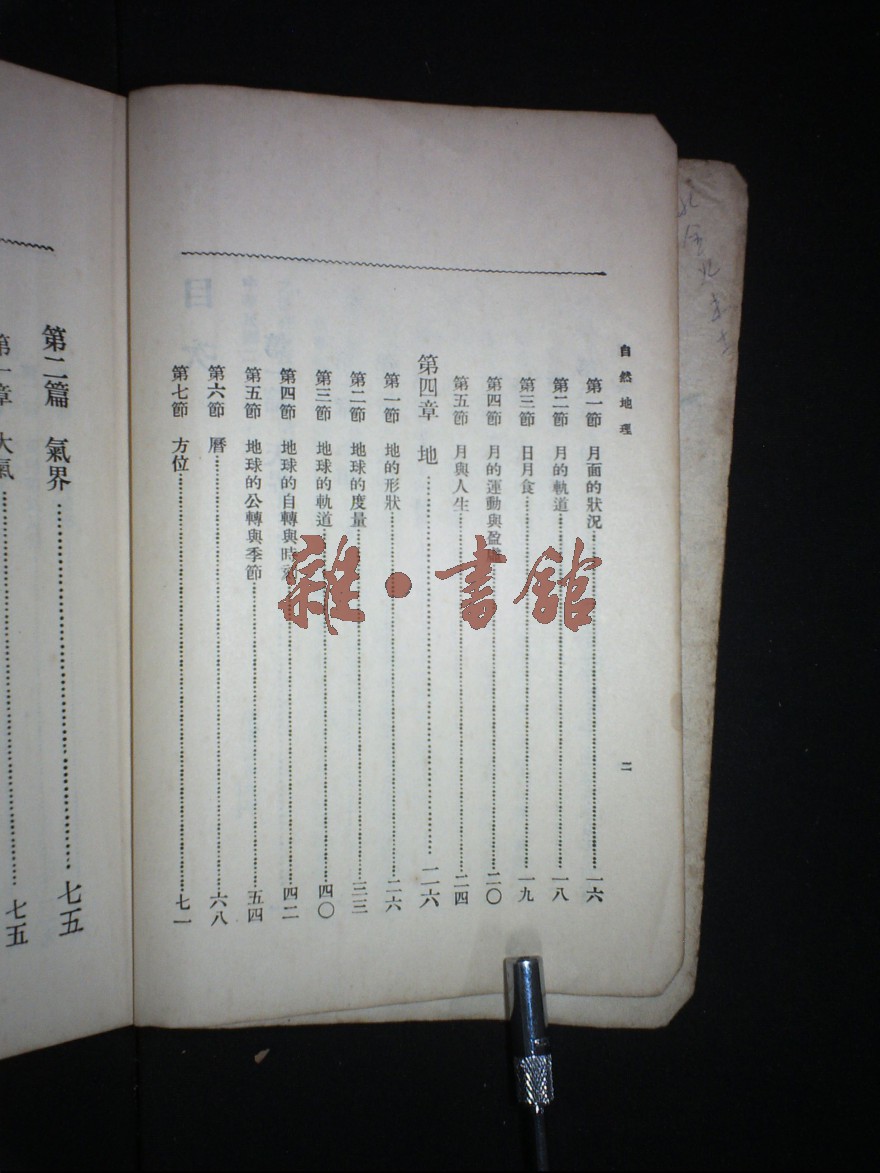 自然地理
二
第一節 月面的狀況……一六
第二節 月的軌道……一八
第三節 日月食……一九
第四節 月的運動與盈……二〇
第五節 月與人生……二四
第四章 地……二六
第一節 地的形狀……二六
第二節 地球的度量……三三
第三節 地球的軌道……四〇
第四節 地球的自轉與時……四二
第五節 地球的公轉與季節……五四
第六節 曆……六八
第七節 方位……七一
第二篇 氣界……七五
第一章 大氣……七五
雜·書館